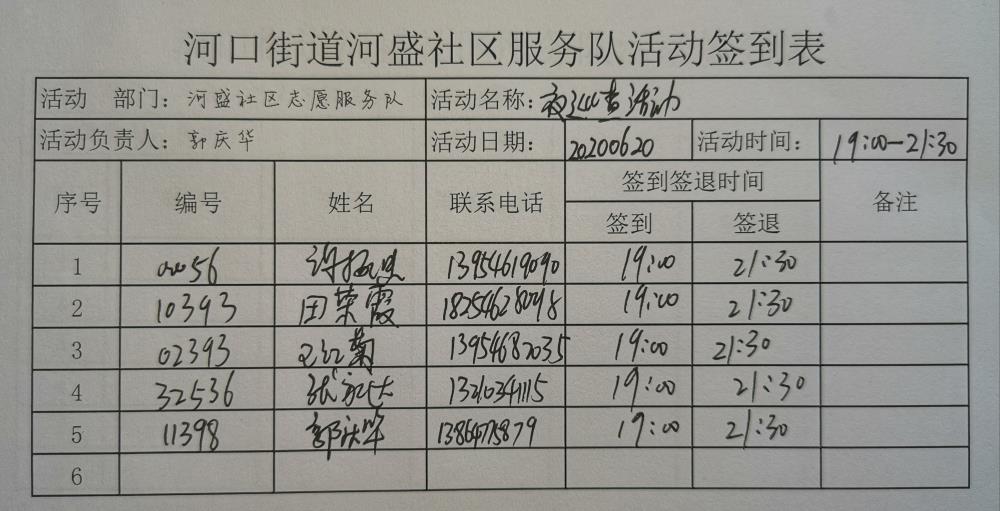 河口街道河盛社区服务队活动签到表
活动 部门：河盛社区志愿服务队 活动名称：夜巡查活动
活动负责人：郭庆华 活动日期：20200620 活动时间：19:00-21:30
序号 编号 姓名 联系电话 签到签退时间 备注
签到 签退
1 00056 13954619090 19:00 21:30
2 10393 田荣霞 18254628098 19:00 21:30
3 02393 王红菊 13954682035 19:00 21:30
4 32536 19:00 21:30
5 11398 郭庆华 13864775879 19:00 21:30
6